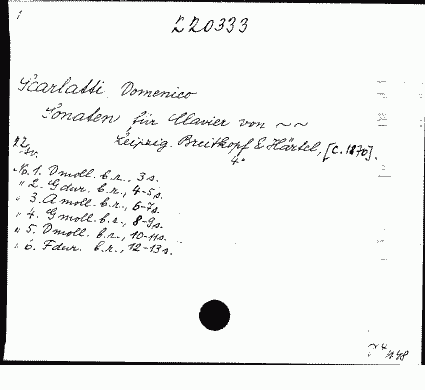 1
220333
Scarlatti Domenico
Sonaten für Clavier von ~ ~
Leipzig. Breitkopf & Härtel, [c. 1870].
4°
22
No. 1. Dmoll. b.r., 3 s.
" 2. Gdur. b.r., 4-5 s.
" 3. Amoll. b.r., 6-7 s.
" 4. Gmoll. b.r., 8-9 s.
" 5. Dmoll. b.r., 10-11 s.
" 6. Fdur. b.r., 12-13 s.